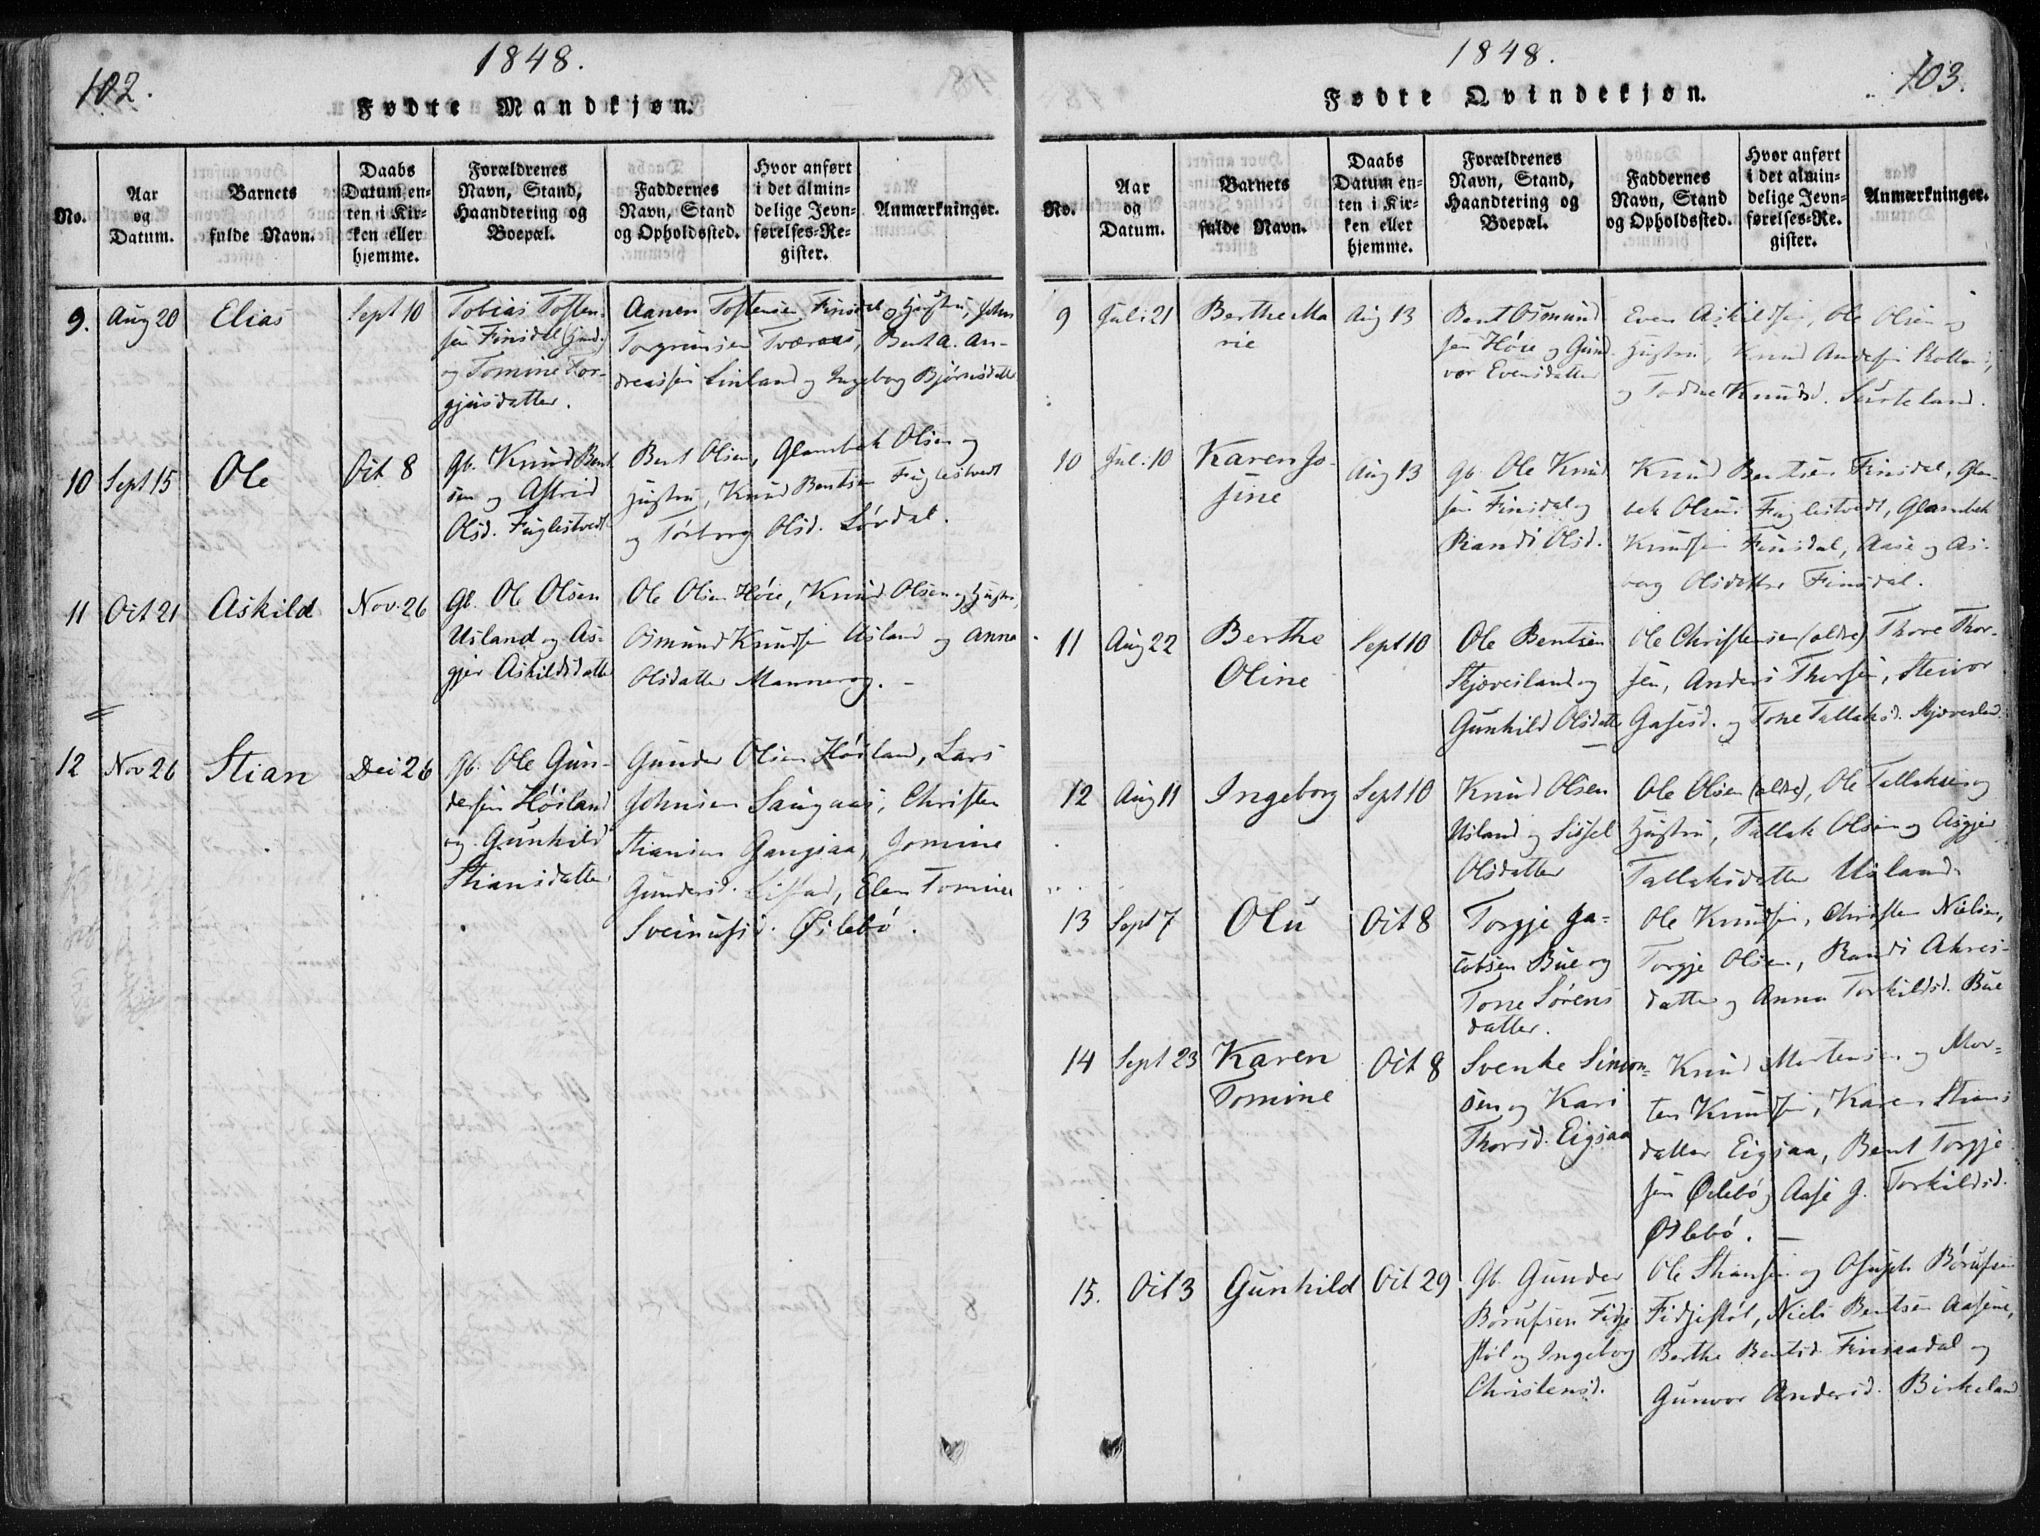 102.
1848.
Fødte Mandkjøn.
No.
Aar
og
Datum.
Barnets
fulde Navn.
Daabs
Datum en-
ten i Kir-
ken eller
hjemme.
Forældrenes
Navn, Stand,
Haandtering og
Boepæl.
Faddernes
Navn, Stand
og Opholdssted.
Hvor anført
i det almin-
delige Jevn-
førelses-Re-
gister.
Anmærkninger.
9. Aug 20 Elias Sept 10
Tobias Tosten-
sen Finsdal
og Tomine Tor-
gjusdatter.
Aanen Tostensen Finsdal og Hustru, John
Torgrimsen Tveraas, Bent A. An-
dreassen Linland og Ingeborg Bjørnsdatter
10 Sept 15 Ole Oct 8
Gb. Knud Bent
sen og Astrid
Olsd. Fuglestvedt
Bent Olsen, Glambek Olsen og
Hustru, Knud Bentsen Fuglestvedt
og Torborg Olsd. Lordal.
11 Oct 21 Askild Nov. 26
Gb. Ole Olsen
Usland og As-
gjer Askildsdatter
Ole Olsen Høie, Knud Olsen og Hustru,
Osmund Knudsen Usland og Anna
Olsdatter Mannerog. -
12 Nov 26 Stian Dec 26
Gb. Ole Gun-
dersen Høiland
og Gunhild
Stiansdatter
Gunder Olsen Høiland, Lars
Johnsen Saugaas, Christen
Stiansen Gangsaa, Jomine
Gundersd. Elen Tomine
Øslebø.
1848.
103.
Fødte Qvindekjøn.
No.
Aar
og
Datum.
Barnets
fulde Navn.
Daabs
Datum en-
ten i Kir-
ken eller
hjemme.
Forældrenes
Navn, Stand,
Haandtering og
Boepæl.
Faddernes
Navn, Stand
og Opholdssted.
Hvor anført
i det almin-
delige Jevn-
førelses-Re-
gister.
Anmærkninger.
9 Juli 21 Berthe Ma
rie
Aug 13
Bent Osmund
sen Høie og Gun
vor Evensdatter
Even Askildsen, Ole Olsen og
Hustru, Knud Andersen
og Todne Knudsd.
10 Jul. 10 Karen Jo-
sine
Aug 13
Gb. Ole Knud
sen Finsdal og
Randi Olsd.
Knud Bentsen Finsdal, Glam-
bek Olsen Fuglestvedt, Glambek
Knudsen Finsdal, Aase og As-
borg Olsdatter Finsdal.
11 Aug 22 Berthe
Oline
Sept 10
Ole Bentsen
Skjæveiland og
Gunhild Olsdatter
Ole Christensen (aldre) Thore Thor-
sen, Anders Thorsen, Steivor
og Tone Tallaksd. Skjæveland.
12 Aug 11 Ingeborg Sept 10
Knud Olsen
Usland og Sissel
Olsdatter
Ole Olsen (aldre), Ole Tallaksen og
Hustru, Tallak Olsen og Asgjer
Tallaksdatter Usland.
13 Sept 7 Olu Oct 8
Torgje Ja-
cobsen Bue og
Tone Sørens
datter.
Ole Knudsen, Christen Nielsen,
Torgje Olsen, Randi Akres-
datter og Anna Torkildsd. Bue
14 Sept 23 Karen
Tomine
Oct 8
Svenke Simon-
sen og Kari
Thorsd. Eigsaa
Knud Mortensen og Mor-
ten Knudsen, Karen Stians
datter Eigsaa, Bent Torgje
sen Øslebø og Aase G. Torkildsd.
Øslebø. -
15. Oct 3 Gunhild Oct 29
Gb. Gunder
Børufsen Fidje
støl og Ingeborg
Christensd.
Ole Stiansen og Osuph Børufsen
Fidjestøl, Niels Bentsen Aasene,
Berthe Bentsd. Finsaadal og
Gunvor Andersd. Birkeland